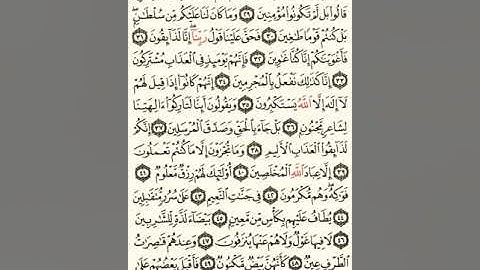 قَالُوا۟ بَل لَّمْ تَكُونُوا۟ مُؤْمِنِينَ ﴿٢٩﴾ وَمَا كَانَ لَنَا عَلَيْكُم مِّن سُلْطَٰنٍۭ ۖ
بَلْ كُنتُمْ قَوْمًا طَٰغِينَ ﴿٣٠﴾ فَحَقَّ عَلَيْنَا قَوْلُ رَبِّنَآ ۖ إِنَّا لَذَآئِقُونَ ﴿٣١﴾
فَأَغْوَيْنَٰكُمْ إِنَّا كُنَّا غَٰوِينَ ﴿٣٢﴾ فَإِنَّهُمْ يَوْمَئِذٍ فِى ٱلْعَذَابِ مُشْتَرِكُونَ
﴿٣٣﴾ إِنَّا كَذَٰلِكَ نَفْعَلُ بِٱلْمُجْرِمِينَ ﴿٣٤﴾ إِنَّهُمْ كَانُوٓا۟ إِذَا قِيلَ لَهُمْ
لَآ إِلَٰهَ إِلَّا ٱللَّهُ يَسْتَكْبِرُونَ ﴿٣٥﴾ وَيَقُولُونَ أَئِنَّا لَتَارِكُوٓا۟ ءَالِهَتِنَا
لِشَاعِرٍ مَّجْنُونٍۭ ﴿٣٦﴾ بَلْ جَآءَ بِٱلْحَقِّ وَصَدَّقَ ٱلْمُرْسَلِينَ ﴿٣٧﴾ إِنَّكُمْ
لَذَآئِقُوا۟ ٱلْعَذَابِ ٱلْأَلِيمِ ﴿٣٨﴾ وَمَا تُجْزَوْنَ إِلَّا مَا كُنتُمْ تَعْمَلُونَ
﴿٣٩﴾ إِلَّا عِبَادَ ٱللَّهِ ٱلْمُخْلَصِينَ ﴿٤٠﴾ أُو۟لَٰٓئِكَ لَهُمْ رِزْقٌ مَّعْلُومٌ ﴿٤١﴾
فَوَٰكِهُ ۖ وَهُم مُّكْرَمُونَ ﴿٤٢﴾ فِى جَنَّٰتِ ٱلنَّعِيمِ ﴿٤٣﴾ عَلَىٰ سُرُرٍ مُّتَقَٰبِلِينَ
﴿٤٤﴾ يُطَافُ عَلَيْهِم بِكَأْسٍ مِّن مَّعِينٍۭ ﴿٤٥﴾ بَيْضَآءَ لَذَّةٍ لِّلشَّٰرِبِينَ
﴿٤٦﴾ لَا فِيهَا غَوْلٌ وَلَا هُمْ عَنْهَا يُنزَفُونَ ﴿٤٧﴾ وَعِندَهُمْ قَٰصِرَٰتُ
ٱلطَّرْفِ عِينٌ ﴿٤٨﴾ كَأَنَّهُنَّ بَيْضٌ مَّكْنُونٌ ﴿٤٩﴾ فَأَقْبَلَ بَعْضُهُمْ عَلَىٰ